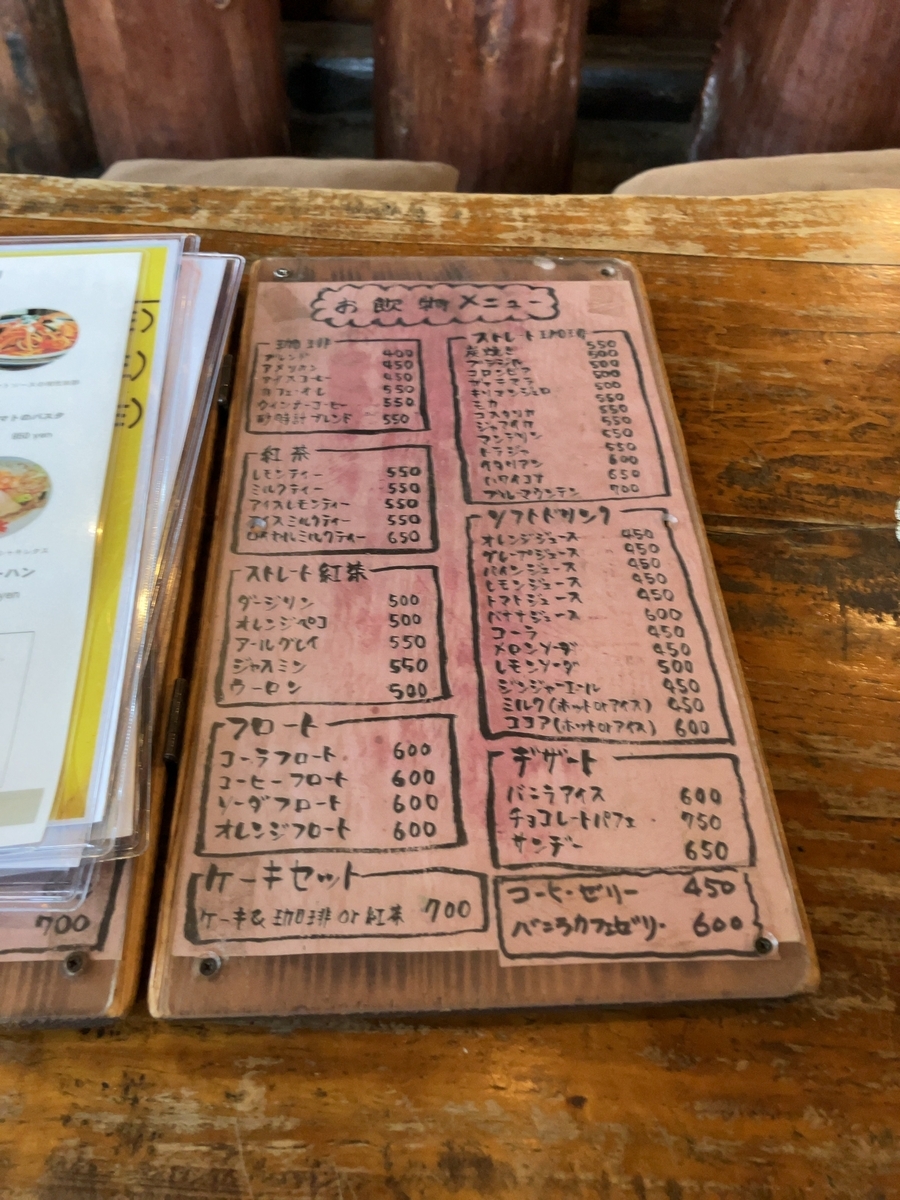 お飲物メニュー
珈琲
ブレンド 400
アメリカン 450
アイスコーヒー 450
カフェ・オ・レ 550
ウィンナーコーヒー 550
砂時計ブレンド 550
紅茶
レモンティー 550
ミルクティー 550
アイスレモンティー 550
アイスミルクティー 550
ロイヤルミルクティー 650
ストレート紅茶
ダージリン 500
オレンジペコ 500
アールグレイ 550
ジャスミン 550
ウーロン 500
フロート
コーラフロート 600
コーヒーフロート 600
ソーダフロート 600
オレンジフロート 600
ケーキセット
ケーキ& 珈琲 or 紅茶 700
ストレート珈琲
炭焼き 550
ブラジル 500
コロンビア 500
グァテマラ 500
キリマンジャロ 500
モカ 550
コスタリカ 550
ジャマイカ 550
マンデリン 550
トラジャ 550
イタリアン 600
ハワイコナ 650
ブルーマウンテン 700
ソフトドリンク
オレンジジュース 450
グレープジュース 450
パインジュース 450
レモンジュース 450
トマトジュース 450
バナナジュース 600
コーラ 450
メロンソーダ 450
レモンソーダ 500
ジンジャーエール 450
ミルク(ホットorアイス) 450
ココア(ホットorアイス) 600
デザート
バニラアイス 600
チョコレートパフェ 750
サンデー 650
コーヒーゼリー 450
バニラカフェゼリー 600
マトのパスタ
850 yen
ーハン
yen
700